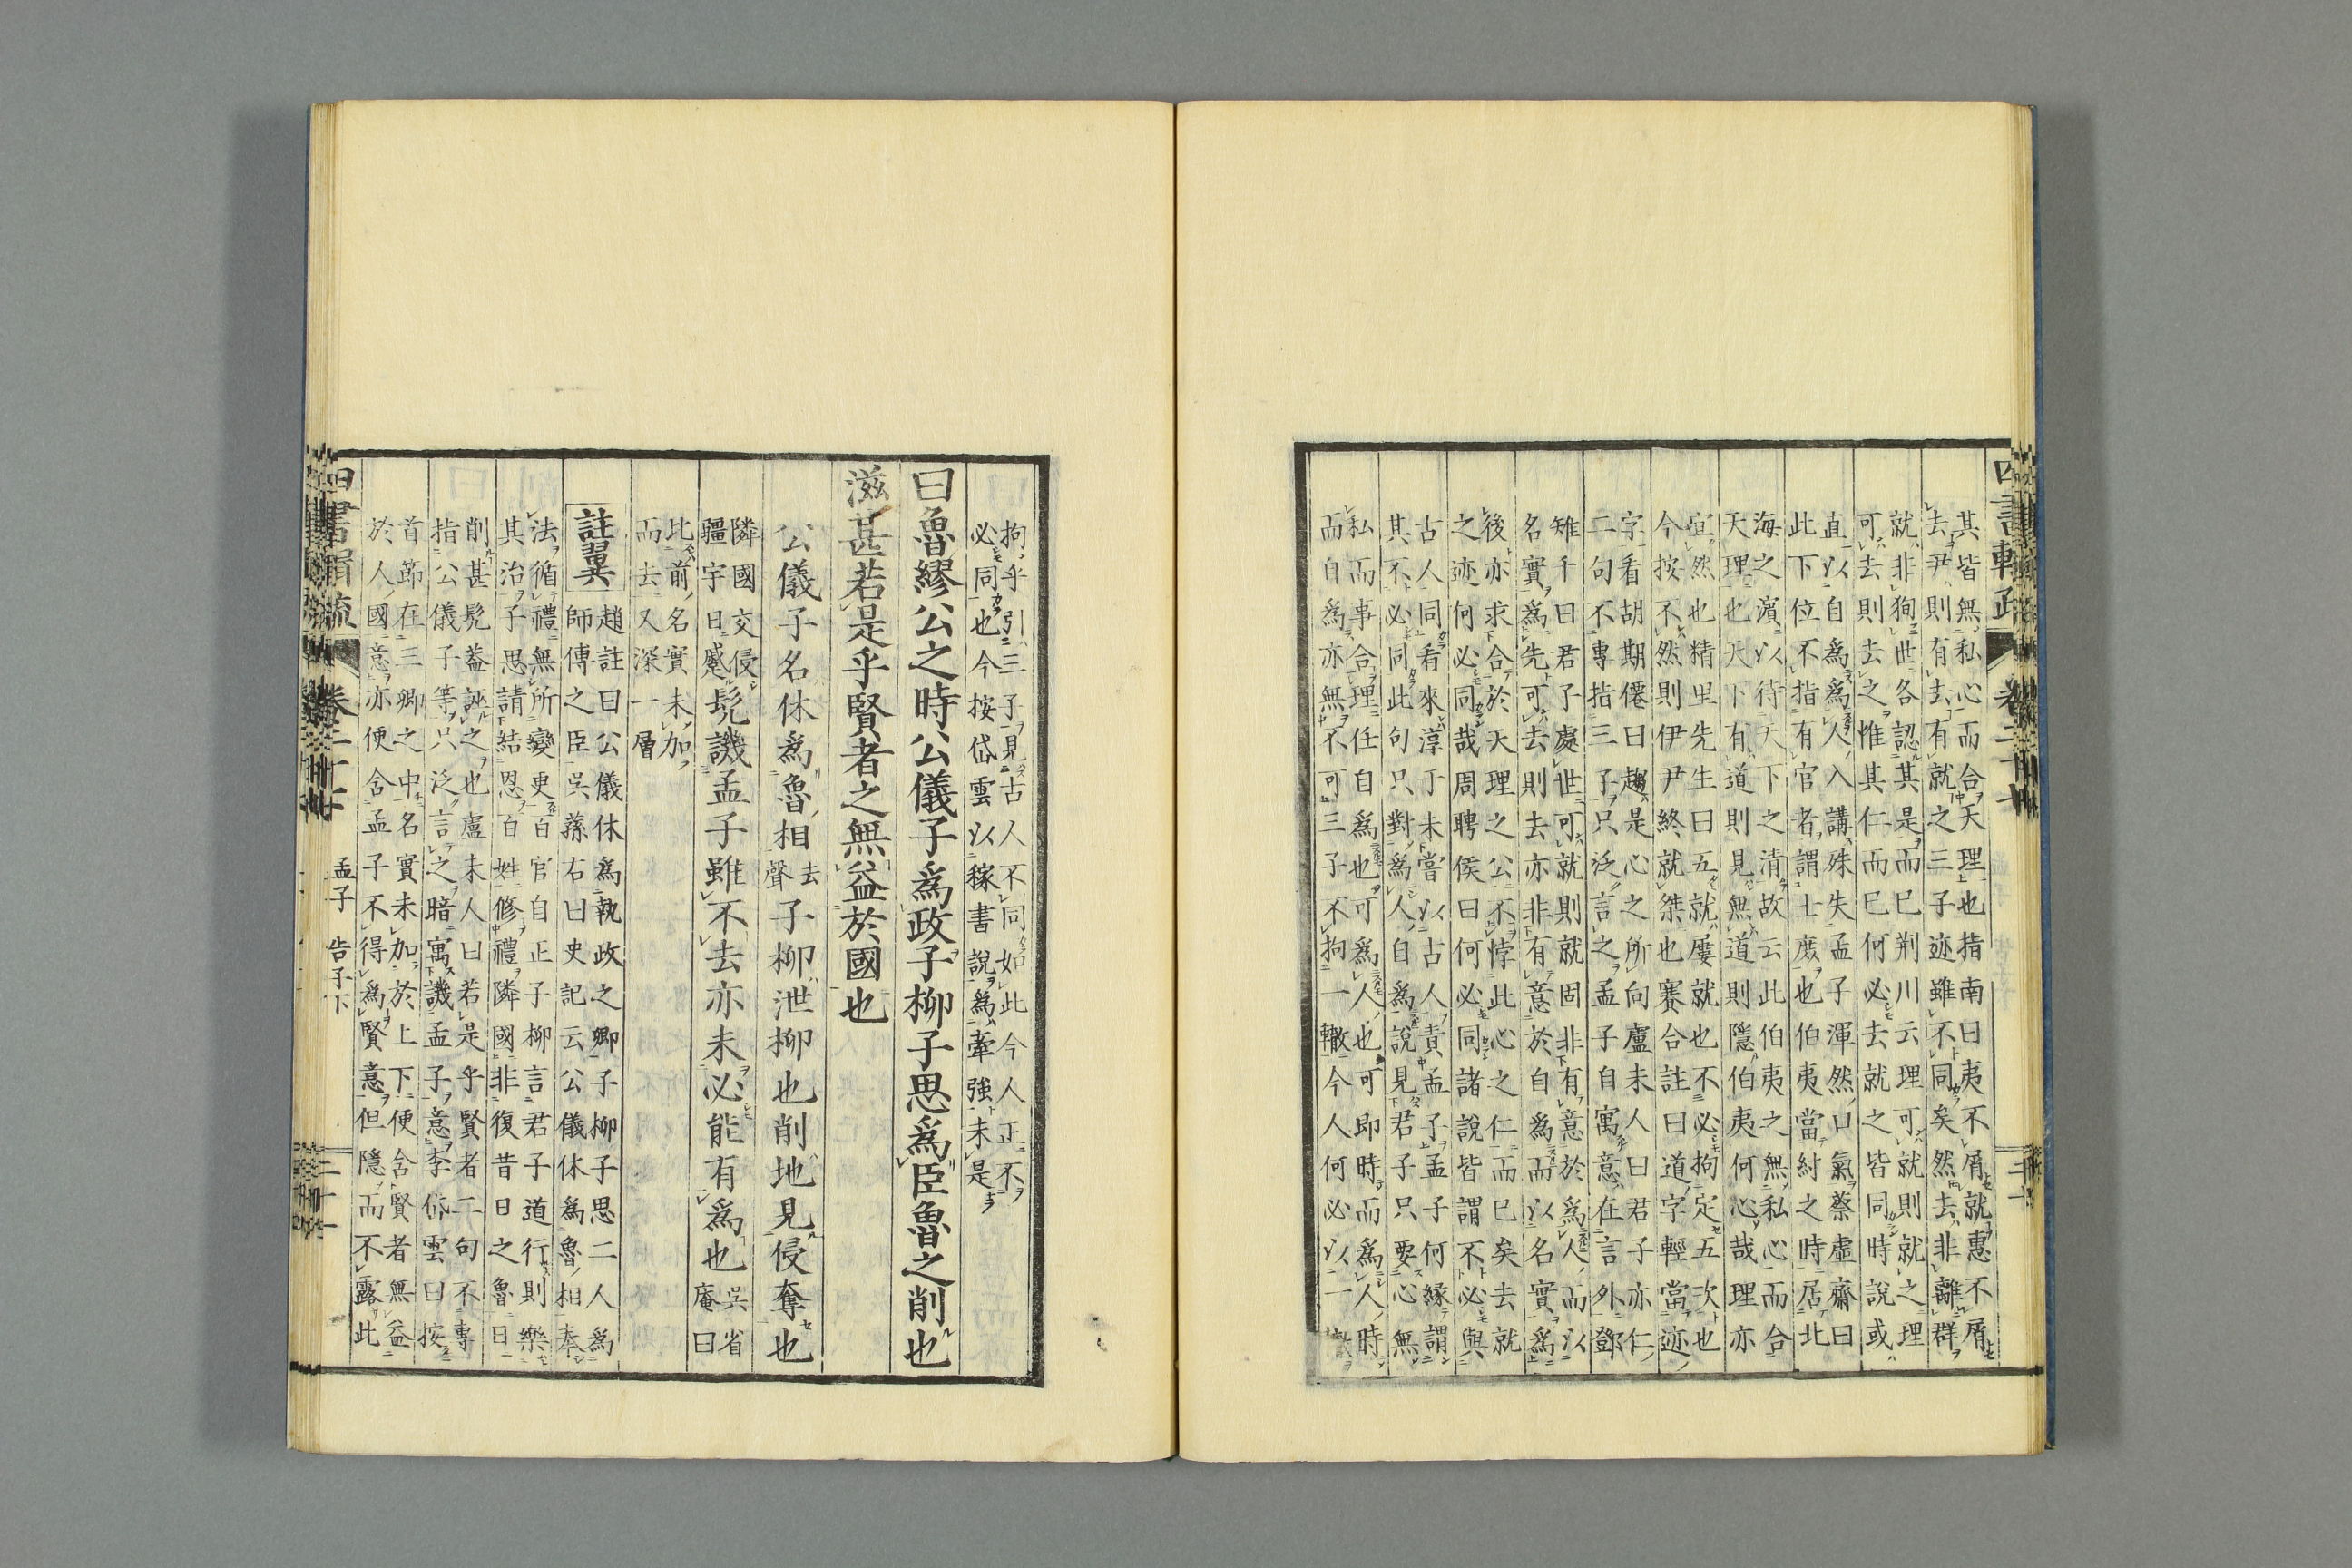 其皆無私心而合天理也指南曰夷不屑就惠不屑
去尹則有去有就之三子迹雖不同矣然去非離群
就非狥世各認其是而已荆川云理可就則就之理
可去則去之惟其仁而已何必去就之皆同時說或
直以自為為人入講殊失孟子渾然口氣蔡虛齋曰
此下位不指有官者謂士庶也伯夷當紂之時居北
海之濵以待天下之清故云此伯夷之無私心而合
天理也天下有道則見無道則隱伯夷何心哉理亦
宜然也精里先生曰五就屢就也不必拘定五次也
今按不然則伊尹終就桀也賽合註曰道字輕當迹
字看胡期僊曰趨是心之所向盧未人曰君子亦仁
二句不專指三子只泛言之孟子自寓意在言外鄧
雉千曰君子處世可就則就固非有意於為人而以
名實為先可去則去亦非有意於自為而以名實為
後亦求合於天理之公不悖此心之仁而已矣去就
之迹何必同哉周聘侯曰何必同諸說皆謂不必與
古人同看來淳于未嘗以古人責孟子孟子何縁謂
其不必同此句只對為人自為說見君子只要心無
私而事合理任自為也可為人也可即時而為人時
而自為亦無不可三子不拘一轍今人何必以一
拘乎引三子見古人不同如此今人正不
必同也今按岱雲以稼書說為牽強未是
曰魯繆公之時公儀子為政子柳子思為臣魯之削也
滋甚若是乎賢者之無益於國也
公儀子名休為魯相去聲子柳泄柳也削地見侵奪也
隣國交侵
疆宇日蹙髠譏孟子雖不去亦未必能有為也吳省
庵曰
此前名實未加
而去又深一層
註翼 趙註曰公儀休為執政之卿子柳子思二人為
師傅之臣吳蓀右曰史記云公儀休為魯相奉
法循禮無所變更百官自正子柳言君子道行則樂
其治子思請結恩百姓修禮隣國非復昔日之魯日
削甚髠葢誣之也盧未人曰若是乎賢者二句不專
指公儀子等只泛言之暗寓譏孟子意李岱雲曰按
首節在三卿之中名實未加於上下便含賢者無益
於人國意亦便含孟子不得為賢意但隱而不露此
孟子 告子下
二十一